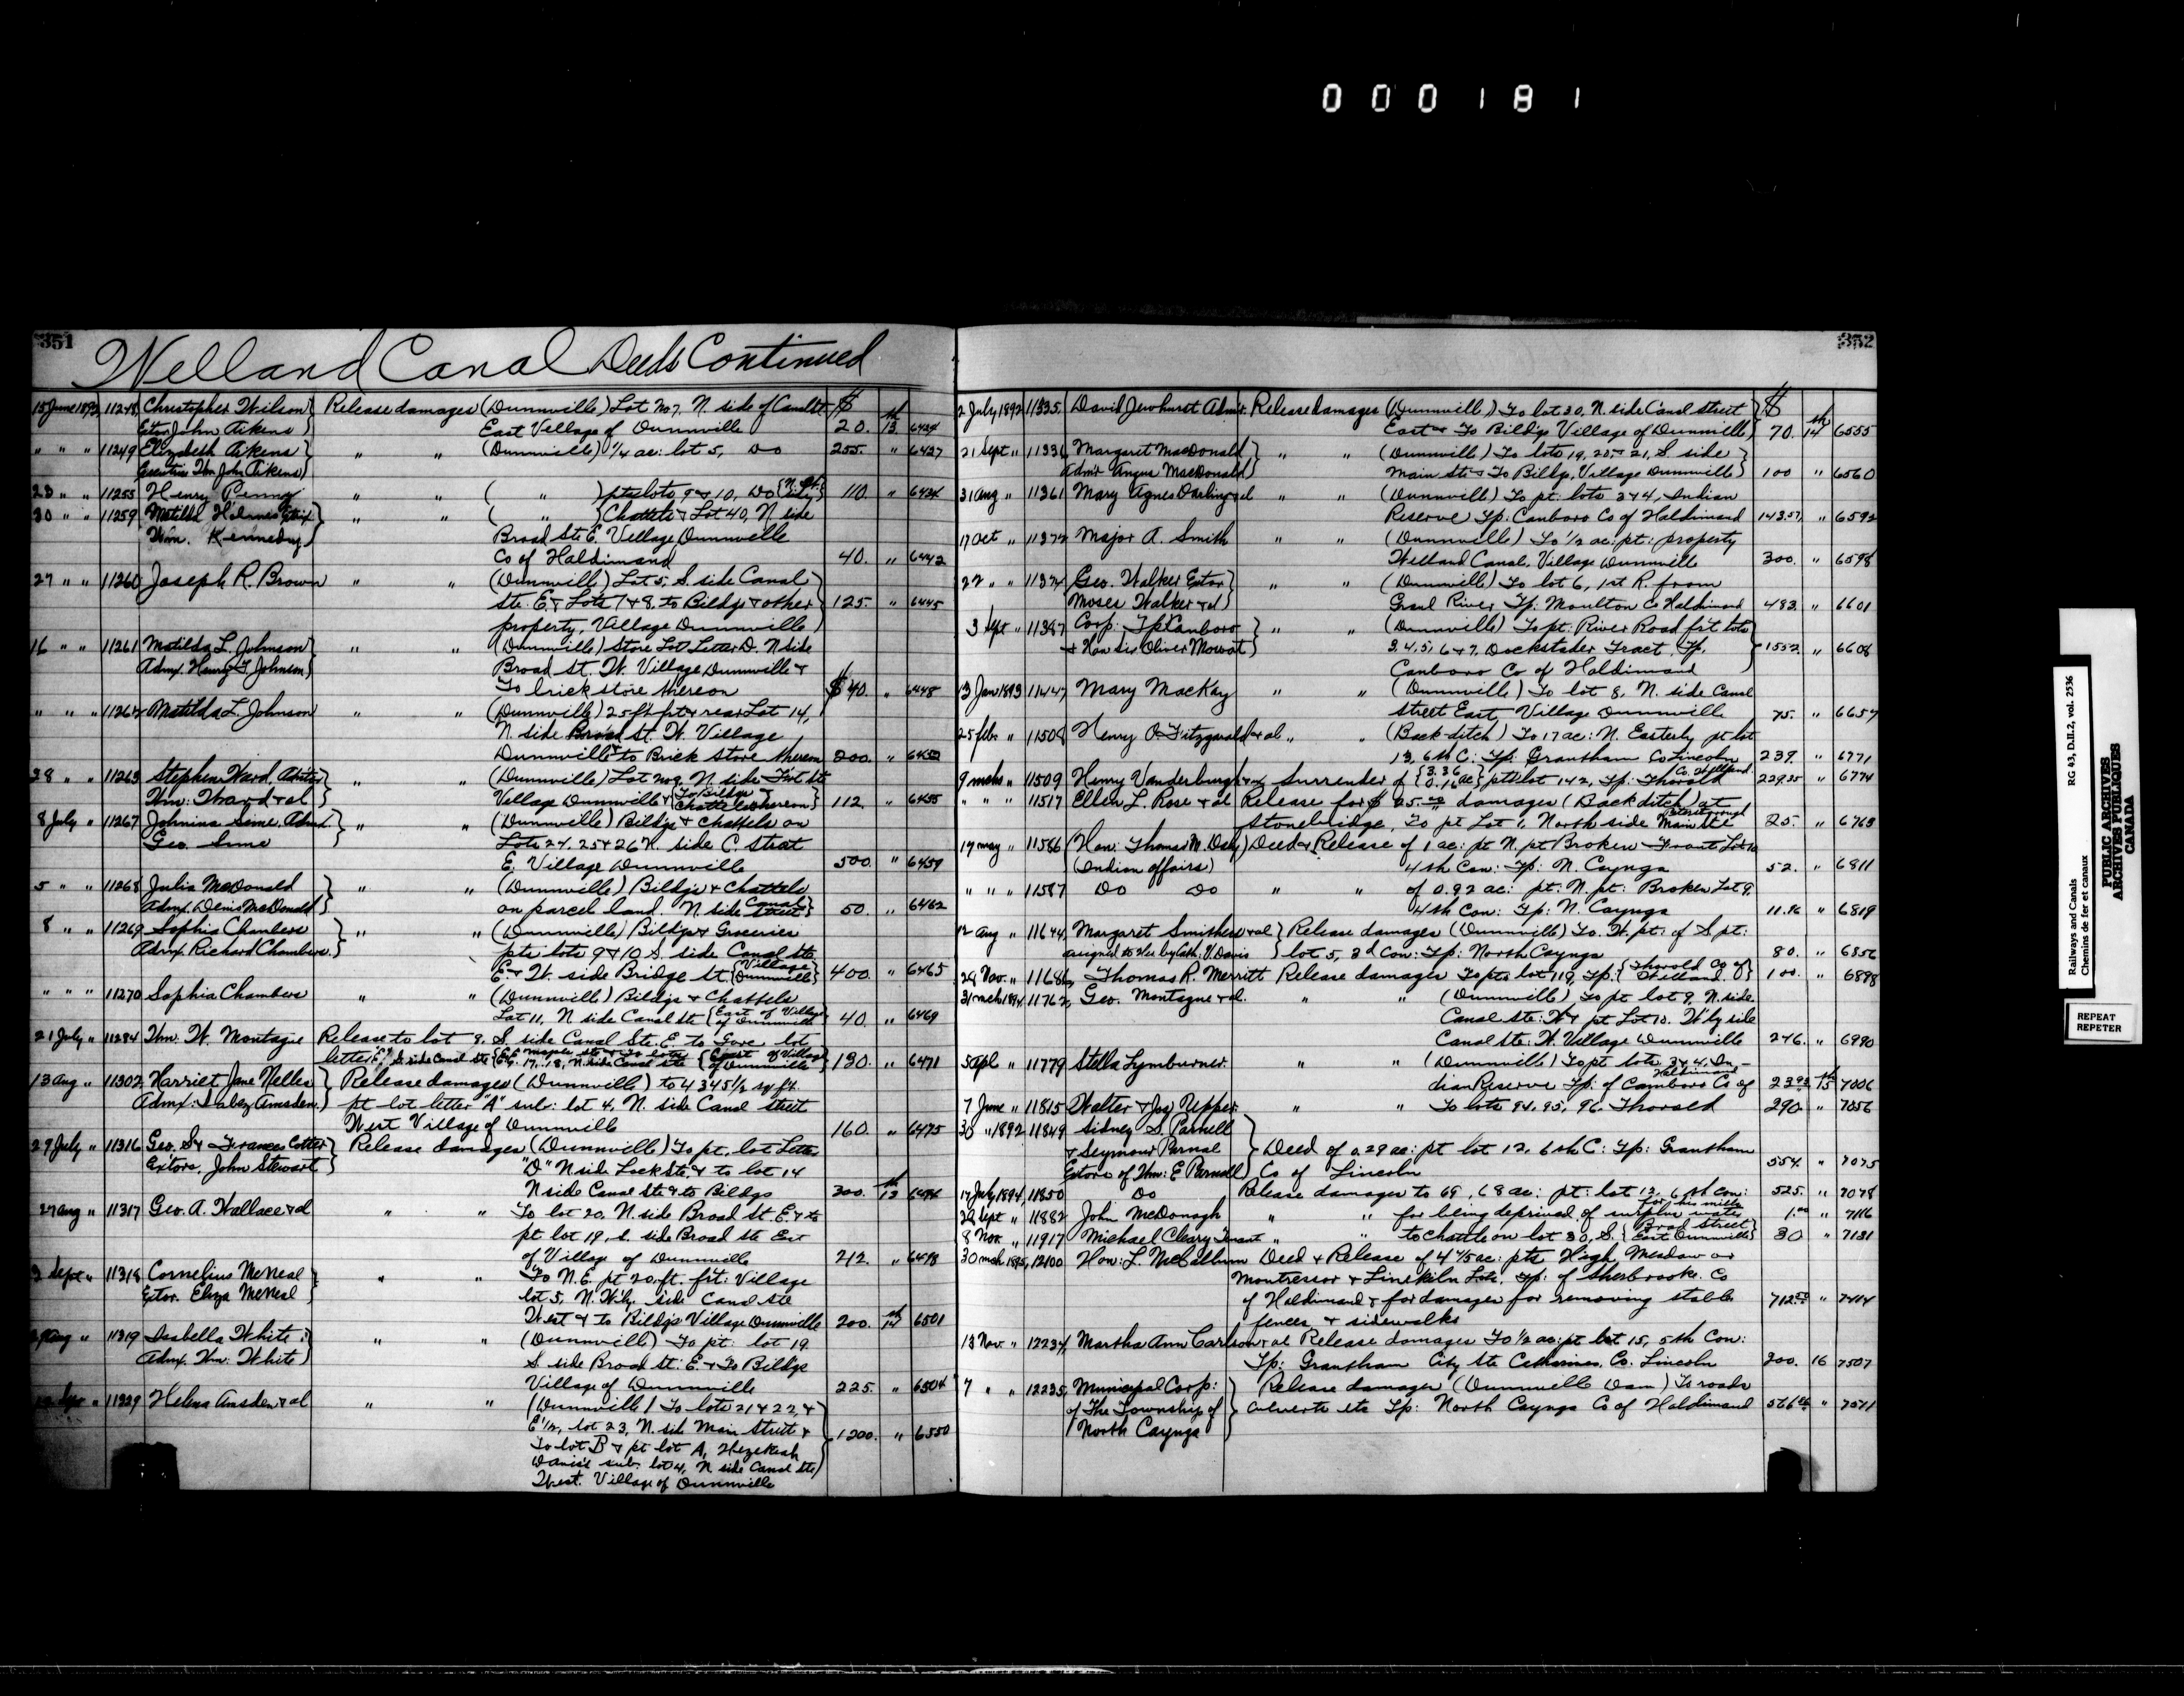 000181
351
Welland Canal Deeds Continued
15 June 1892 11248 Christopher Wilson } Release damages (Dunnville) Lot No 7. N. side of Canal St $
Extor John Aikens East Village of Dunnville 20. 13 6424
" " " 11249 Elizabeth Aikens } " " (Dunnville) 1/4 ac: lot 5, Do 255. " 6427
Executrix John Aikens
23 " " 11255 Henry Penny " " ( " ) pts lots 9 & 10, Do 110. " 6434
30 " " 11259 Matilda Holmes Extrix } " " ( " ) Chattels & Lot 40, N side
Wm. Kennedy Broad St E. Village Dunnville
Co of Haldimand 40. " 6442
27 " " 11260 Joseph R. Brown " " (Dunnville) Lot 5, S. side Canal
Ste. E. & Lots 7 & 8. to Bildgs & other } 125. " 6445
property, Village Dunnville
16 " " 11261 Matilda L. Johnson } " " (Dunnville) Store Lot Letter D. N side
Admx. Henry F Johnson Broad St. W. Village Dunnville &
To brick store thereon $40. " 6448
" " " 11262 Matilda L. Johnson " " (Dunnville) 25 ft frt & rear Lot 14,
N. side Broad St. W. Village
Dunnville & to Brick store thereon 200. " 6452
28 " " 11263 Stephen Ward, } " " (Dunnville) Lot No 9. N. side
Wm: Ward & al Village Dunnville & { To Bildgs & Chattels thereon } 112. " 6455
8 July " 11267 Johnina Sime, Admx. } " " (Dunnville) Bildgs & Chattels on
Geo. Sime Lots 24, 25 & 26 N. side C. Street
E. Village Dunnville 500. " 6459
5 " " 11268 Julia McDonald } " " (Dunnville) Bildgs & Chattels
Admx. Denis McDonald on parcel land. N side Canal Street } 50. " 6462
8 " " 11269 Sophia Chambers } " " (Dunnville) Bildgs & Groceries
Admx Richard Chambers. pts lots 9 & 10 S. side Canal Ste
E & W. side Bridge St. { Village Dunnville } 400. " 6465
" " " 11270 Sophia Chambers " " (Dunnville) Bildgs & Chattels
Lot 11, N side Canal Ste { East of Village of Dunnville 40. " 6469
21 July " 11284 Wm. W. Montague Release to lot 8. S. side Canal Ste. E. to Gore lot
letter S side Canal Ste 17, 18, N. side Canal Ste { East of Village of Dunnville } 130. " 6471
13 Aug " 11302 Harriet Jane Nelles } Release damages (Dunnville) to 4345 1/2 sq ft.
Admx: Jabez Amsden. pt lot letter "A" sub: lot 4, N. side Canal Street
West Village of Dunnville 160. " 6475
29 July " 11316 Geo. S & Frances Cotter } Release damages (Dunnville) To pt. lot Letter
Extors. John Stewart "D" N side Lock Ste. & to lot 14
N side Canal Ste & to Bildgs 300. 13
27 Aug " 11317 Geo. A. Wallace & al " " To lot 20, N. side Broad St. E. & to
pt lot 19, S. side Broad Ste East
of Village of Dunnville 212. " 6498
2 Sept " 11318 Cornelius McNeal } " " To N. E. pt 20. ft. frt: Village
Extor. Eliza McNeal lot 5, N. W'ly. side Canal Ste
West & to Bildgs Village Dunnville 200. 14 6501
Aug " 11319 Isabella White: } " " (Dunnville) To pt. lot 19.
Admx. Wm: White S. side Broad St: E. & To Bildgs
Village of Dunnville 225. " 6504
" 11329 Helena Amsden & al " " (Dunnville) To lots 21 & 22 &
E 1/2, lot 23, N. side Main Street & } 1200. " 6550
To lot B & pt lot A, Hezekiah
Davis's sub. lot 4, N side Canal Ste
West. Village of Dunnville
352
2 July 1892 11335. David Jewhurst Admr. Release damages (Dunnville) To lot 30, N. side Canal Street } $
East & To Bildgs Village of Dunnville 70. 14 6555
21 Sept " 11336 Margaret MacDonald } " " (Dunnville) To lots 19, 20 & 21, S side
Admx Angus MacDonald Main Ste & To Bildgs, Village Dunnville 100 " 6560
31 Aug " 11361 Mary Agnes Darling & al " " (Dunnville) To pt: lots 3 & 4, Indian
Reserve Tp: Canboro Co of Haldimand 143.57 " 6592
17 Oct " 11372 Major A. Smith " " (Dunnville) To 1/2 ac: pt: property
Welland Canal, Village Dunnville 300. " 6598
22 " " 11374 Geo. Walker Extor } " " (Dunnville) To lot 6, 1st R. from
Moses Walker & al Grand River Tp: Moulton Co Haldimand 483. " 6601
3 Sept " 11387 Corp: Tp Canboro } " " (Dunnville) To pt: River Road frt lots
& Hon Sir Oliver Mowat 3, 4, 5, 6 & 7, Dockstader Tract Tp. 1552. " 6608
Canboro Co of Haldimand
13 Jan 1893 11447 Mary MacKay " " (Dunnville) To lot 8. N. side Canal
Street East, Village Dunnville 75. " 6657
25 Feb " 11508 Henry O. Fitzgerald & al " " (Back-ditch) To 17 ac: N. Easterly pt lot
13, 6th C: Tp: Grantham Co Lincoln 239. " 6771
9 mch " 11509 Henry Vanderburgh Surrender of { 3.36 0.16 ac } pts lot 142, Tp: Thorold Co. Welland 229.35 " 6774
" " " 11517 Ellen L. Rose & al Release for $25.00 damages (Back ditch) at
Stonebridge, To pt Lot 1, North side Main Ste 25. " 6763
17 May " 11586 Hon: Thomas M. Daly) Deed & Release of 1 ac: pt N. pt Broken Front Lot 10
(Indian Affairs) 4th Con: Tp: N. Cayuga 52. " 6811
" " " 11587 Do Do " " of 0.92 ac: pt: N. pt: Broken Lot 9.
4th Con: Tp: N. Cayuga 11.96 " 6819
12 Aug " 11644 Margaret Smithers & al } Release damages (Dunnville) To. W. pt: of S pt:
assigned to Her by Cath: V. Davis lot 5, 3d Con: Tp: North Cayuga 80. " 6856
28 Nov. " 11686 Thomas R. Merritt Release damages To pts lot 119, Tp: { Thorold Co of Welland } 100. 6898
31 mch 1894 11762 Geo. Montague & al. " " (Dunnville) To pt lot 9. N. side
Canal Ste: W & pt Lot 10. W'ly side
Canal Ste: W. Village Dunnville 246. " 6990
5 Apl " 11779 Stella Lymburner. " " (Dunnville) To pt lots 3 & 4. In-
dian Reserve Tp: of Canboro Co of Haldimand 15 7006
7 June " 11815 Walter & Jos Upper. " " To lots 94, 95, 96. Thorold 290. " 7056
30 " 1892 11849 Sidney S. Parnell
& Seymour Parnal } Deed of 0.29 ac: pt lot 12, 6th C: Tp: Grantham
Extors of Wm: E Parnell Co of Lincoln 554. " 7075
17 July 1894 11850 Do Release damages to 69.68 ac: pt: lot 12, 6th con: 525. " 7078
28 Sept " 11882 John McDonagh " " for being deprived of surplus water for his mills 1.00 " 7116
8 Nov. " 11917 Michael Cleary Tenant " " to chattels on lot 30, S. { Broad Street East Dunnville } 30 " 7131
30 mch 1895, 12100 Hon: L. McCallum Deed & Release of 4 4/5 ac: pts High Meadow or
Montressor & Limekiln Lots, Tp: of Sherbrooke. Co
of Haldimand & for damages for removing stable 712.50 " 7414
fences & sidewalks
13 Nov. " 12234 Martha Ann Carlson & al Release damages To 1/2 ac: pt lot 15, 5th Con:
Tp: Grantham City Ste Catharines. Co. Lincoln 200. 16 7507
7 " " 12235 Municipal Corp: } Release damages (Dunnville Dam) To roads
of The Township of culverts etc Tp: North Cayuga Co of Haldimand " 7571
North Cayuga
Railways and Canals
Chemins de fer et canaux
RG 43, D.II.2, vol. 2536
PUBLIC ARCHIVES
ARCHIVES PUBLIQUES
CANADA
REPEAT
REPETER